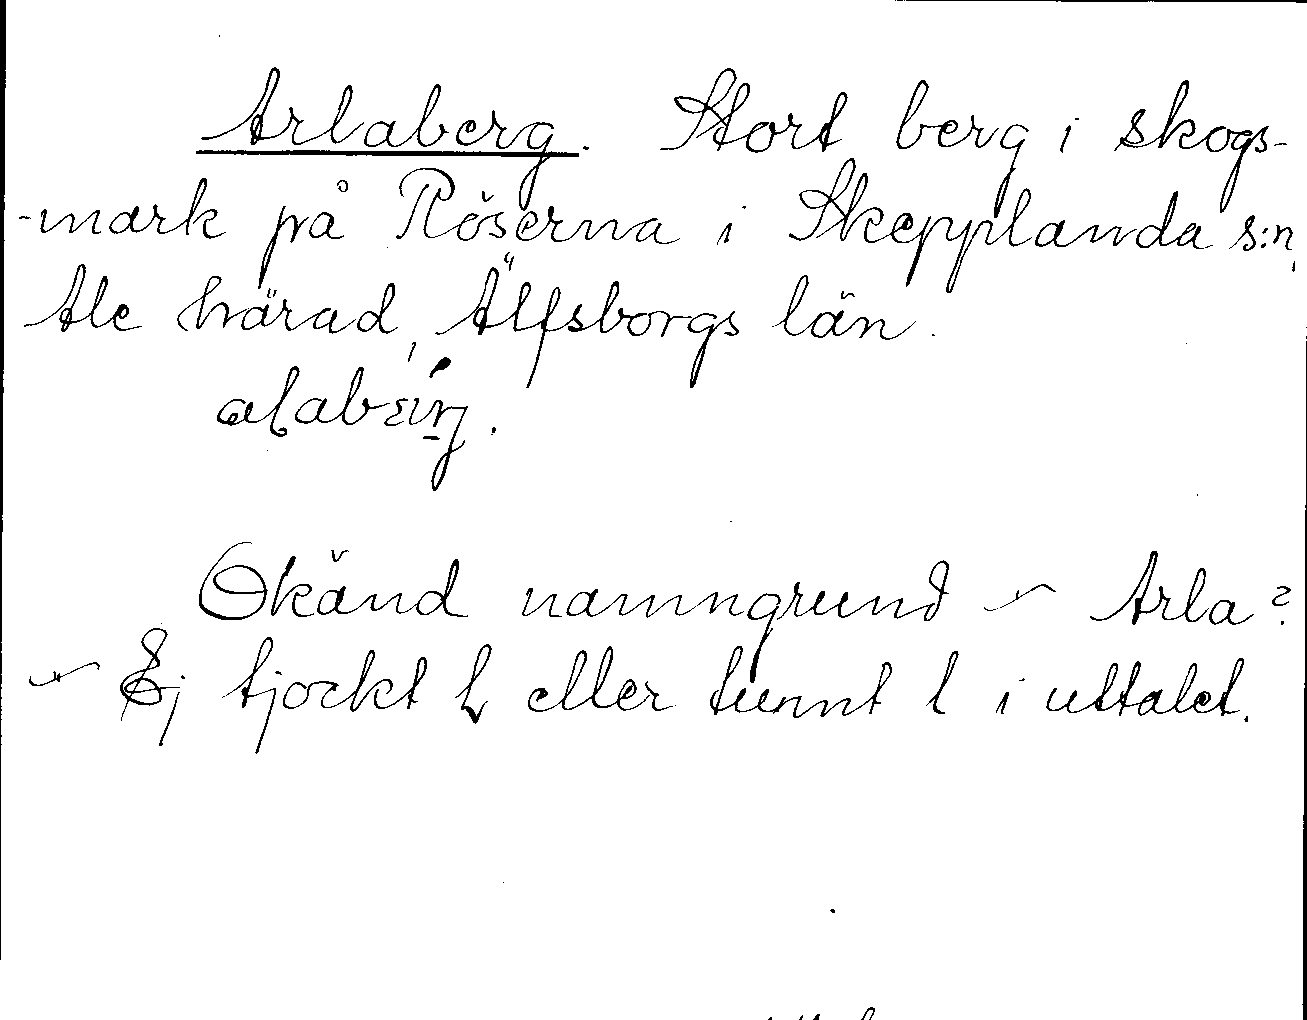 Arlaberg. Stort berg i skogs-
-mark på Röserna i Skepplanda s:n,
Ale härad, Älfsborgs län.
Okänd namngrund ~ Arla?
~ Ej tjockt L eller tunnt l i uttalet.